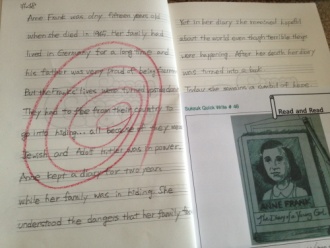 Anne Frank was only fifteen years old
when she died in 1945. Her family had
lived in Germany for a long time and
his father was very proud of being German
But the Franks' lives were turned upside down
They had to flee from their country to
go into hiding... all because they were
Jewish and Adolf Hitler was in power.
Anne kept a diary for two years
while her family was in hiding. She
understood the dangers that her family
But in her diary, she remained hopeful
about the world even though terrible things
were happening. After her death her diary
was turned into a book
Today she remains a symbol of hope
Quick Write # 48
Read and Read
ANNE FRANK
The Diary of a Young Girl